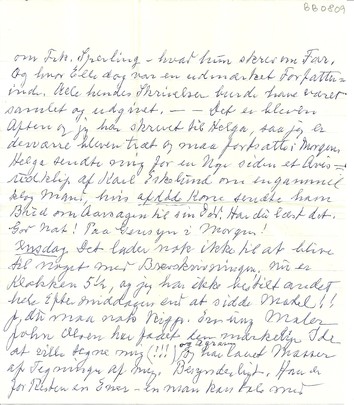 BB0809
om Frk. Sperling - hvad hun skrev om Far.
Og hvor Elle dog var en udmærket Forfatter-
inde. Alle hendes Skrivelser burde have været
samlet og udgivet. — — Det er bleven
Aften og jeg har skrevet til Helga, saa jeg er
desværre bleven træt og maa fortsætte i Morgen.
Helga sendte mig for en Uge siden et Avis-
udklip af Karl Eskelund om en gammel
klog Mand, hvis afdød Kone sendte ham
Bud om Aarsagen til sin Død. Har du læst det.
God Nat! Paa Gensyn i Morgen!
Onsdag. Det lader nok ikke til at blive
til noget med Brevskrivningen, nu er
Klokken 5½, og jeg har ikke bestilt andet
hele Eftermiddagen end at sidde Model!!
Jo, du maa nok kigge. En ung Maler
John Olsen har faaet den mærkelige Ide
at ville tegne mig (!!!) Og han har lavet Masser
af Tegninger af mig. Besynderligt. Han er
for Resten en - en man kan tale med